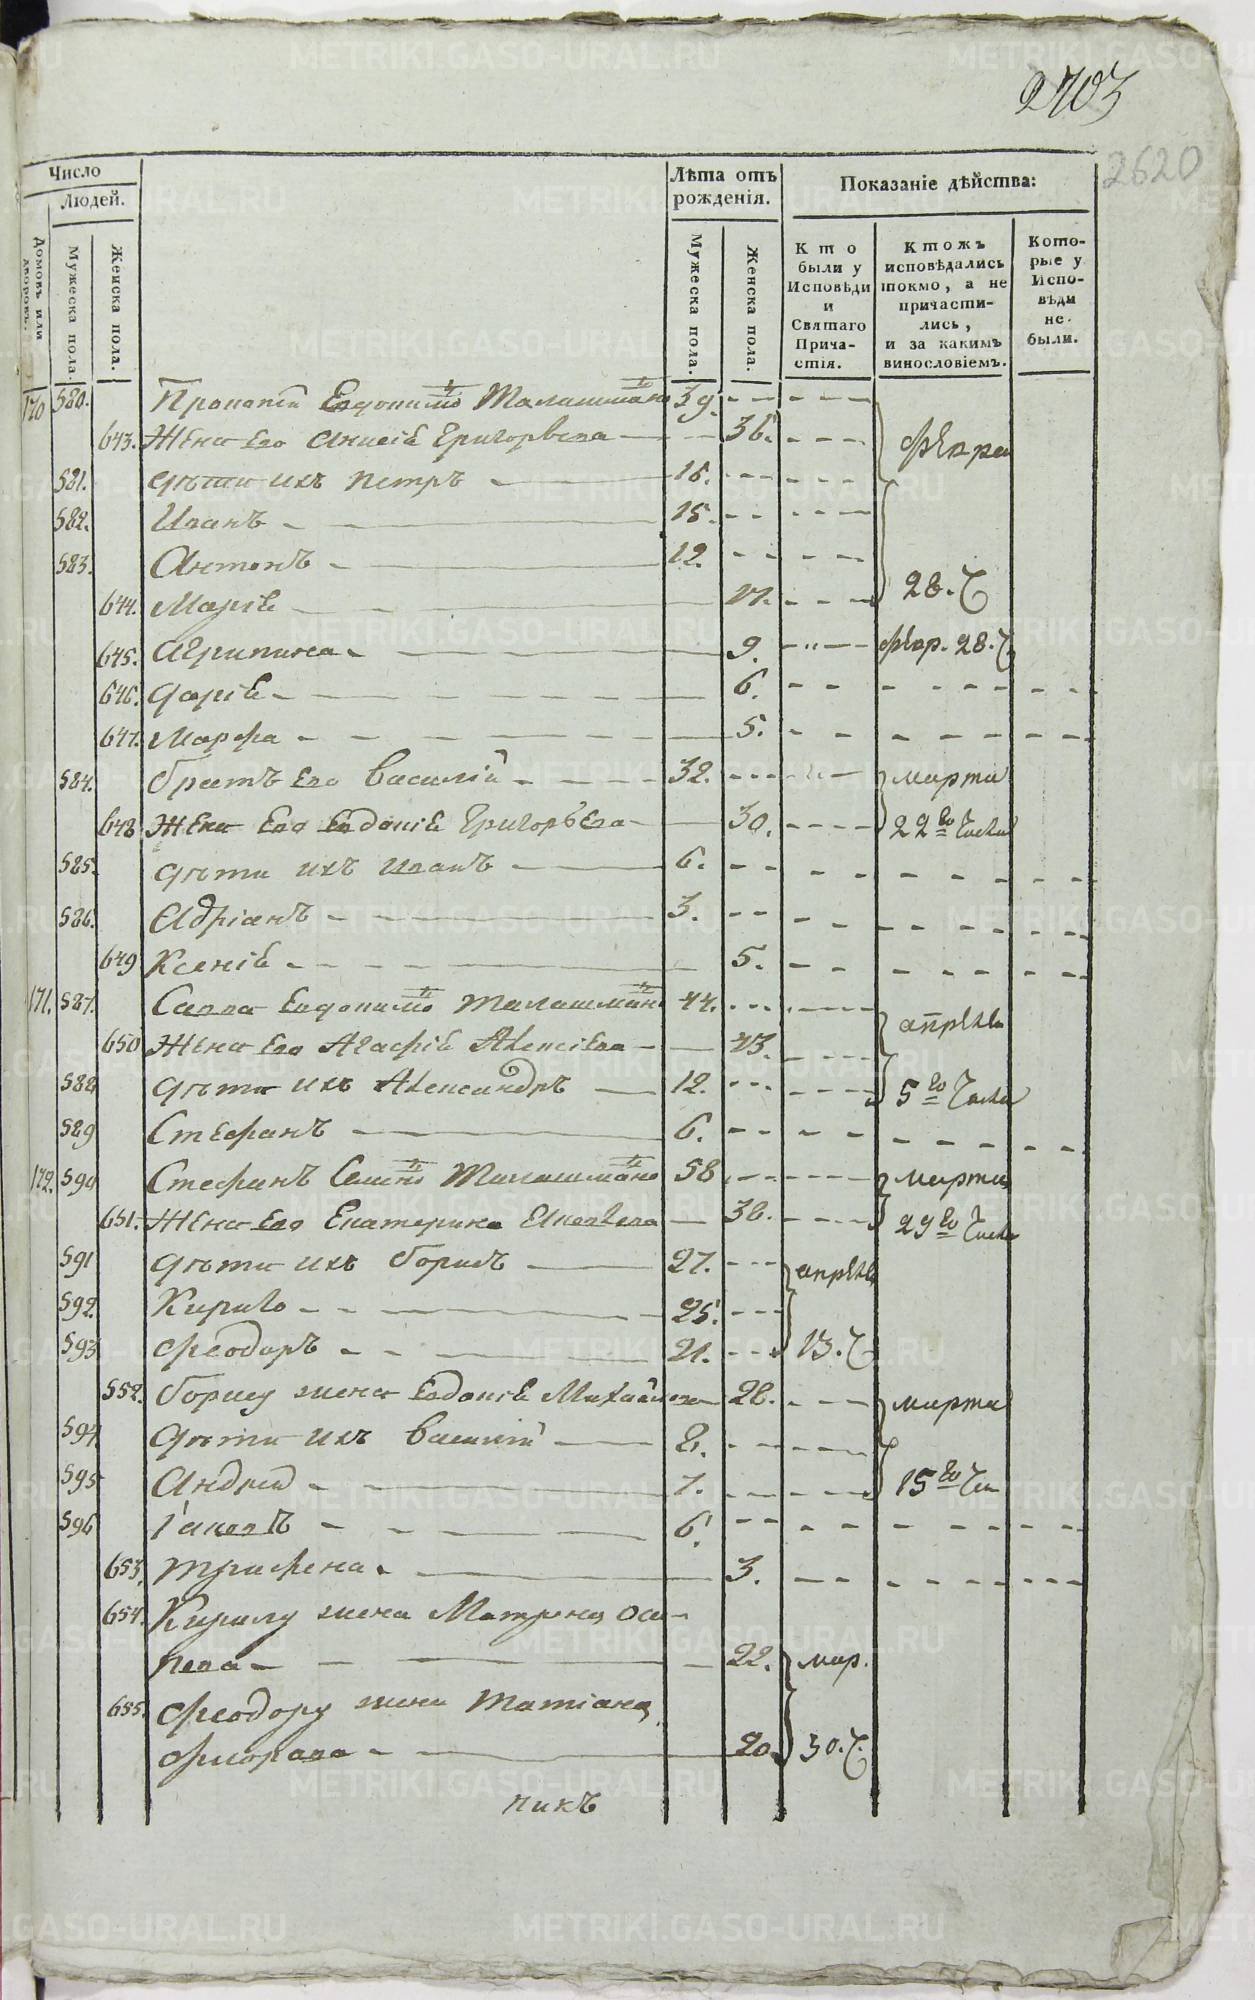 2703
2620
Число
Людей.
Домовъ или дворовъ.
Мужеска пола.
Женска пола.
Лѣта отъ рожденія.
Мужеска пола.
Женска пола.
Показаніе дѣйства:
Кто были у Исповѣди и Святаго Прича-стія.
Ктожъ исповѣдались токмо, а не причасти-лись, и за какимъ винословіемъ.
Кото-рые у Испо-вѣди не были.
170 580. Прокопій Евдокимо Талашмано 39.
643. Жена Его Анисіѣ Григорьева 36. февра
581. Дѣти ихъ Петръ 16.
582. Иванъ 15.
583. Антонъ 12.
644. Маріѣ 17. 28. Ч
645. Агрипина 9. февр. 28. Ч
646. Даріѣ 6.
647. Марфа 5.
584. Братъ Его Василій 32. марта
648 Жена Его Евдокіѣ Григорьева 30. 22го Числа
585. Дѣти ихъ Иванъ 6.
586. Адріанъ 3.
649 Ксеніѣ 5.
171. 587. Савва Евдокимо Талашмано 44. апрѣлѣ
650 Жена Его Агафіѣ Алексіева 43.
588 Дѣти ихъ Александръ 12. 5го Числа
589 Стефанъ 6.
172. 590 Стефанъ Симео Талашмано 58 марта
651. Жена Его Екатерина Яковлева 38. 29го Числа
591 Дѣти ихъ Борисъ 27. апрѣлѣ
592. Кирило 25.
593 Феодоръ 21. 13. Ч
552. Борису жена Евдокіѣ Михайлова 28. марта
594 Дѣти ихъ Василій 8.
595 Андрей 7. 15го Чи
596 Іаковъ 6.
653. Трифена 3.
654. Кирилу жена Матрена Оси-
пева 22. мар.
655. Феодору жена Татіана
Фиорова 20. 30. Ч.
никъ
METRIKI.GASO-URAL.RU